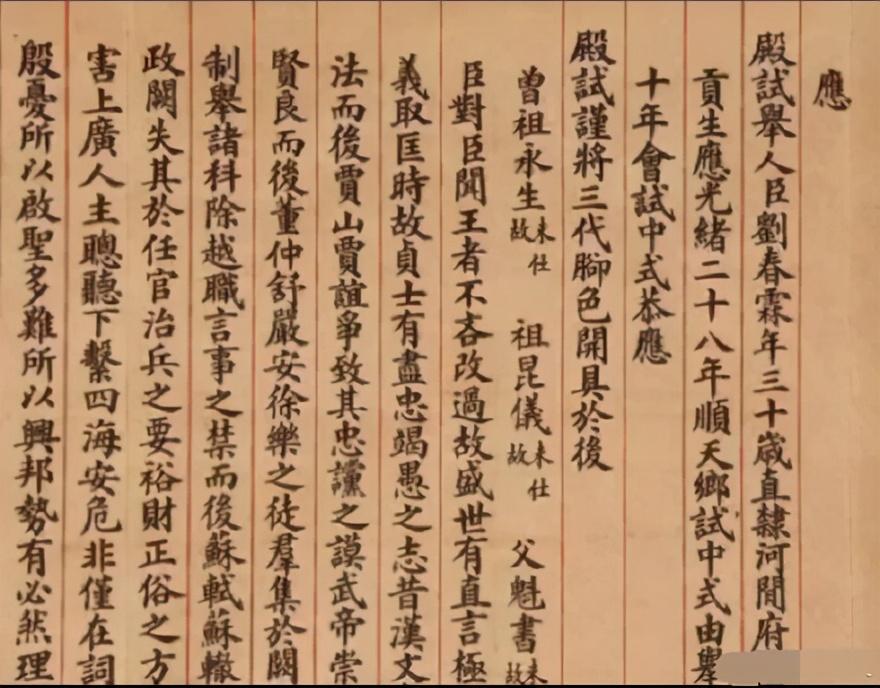 應
殿試舉人臣劉春霖年三十歲直隸河間府
貢生應光緒二十八年順天鄉試中式由舉
十年會試中式恭應
殿試謹將三代腳色開具於後
曾祖永生未仕故 祖昆儀未仕故 父魁書未故
臣對臣聞王者不吝改過故盛世有直言極
義取匡時故貞士有盡忠竭愚之志昔漢文
法而後賈山賈誼爭致其忠讜之謨武帝崇
賢良而後董仲舒嚴安徐樂之徒羣集於闕
制舉諸科除越職言事之禁而後蘇軾蘇轍
政闕失其於任官治兵之要裕財正俗之方
害上廣人主聰聽下繫四海安危非僅在詞
殷憂所以啟聖多難所以興邦勢有必然理